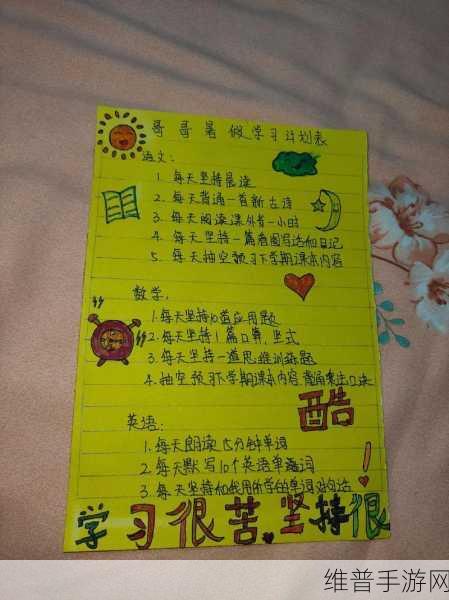 哥哥暑假学习计划表
语文:
1. 每天坚持晨读
2. 每天背诵一首新古诗
3. 每天阅读课外书一小时
4. 每天坚持一篇看图写话和日记
5. 每天抽空预习下学期课本内容
数学:
1. 每天坚持10道应用题
2. 每天坚持1篇口算,竖式
3. 每天坚持一道思维训练题
4. 抽空预习下学期课本内容 背诵乘法口诀
英语:
1. 每天朗读15分钟单词
2. 每天默写10个英语单词
3. 每天坚持和我用所学的单词对句话
学习很苦.坚持很
酷!
维普手游网